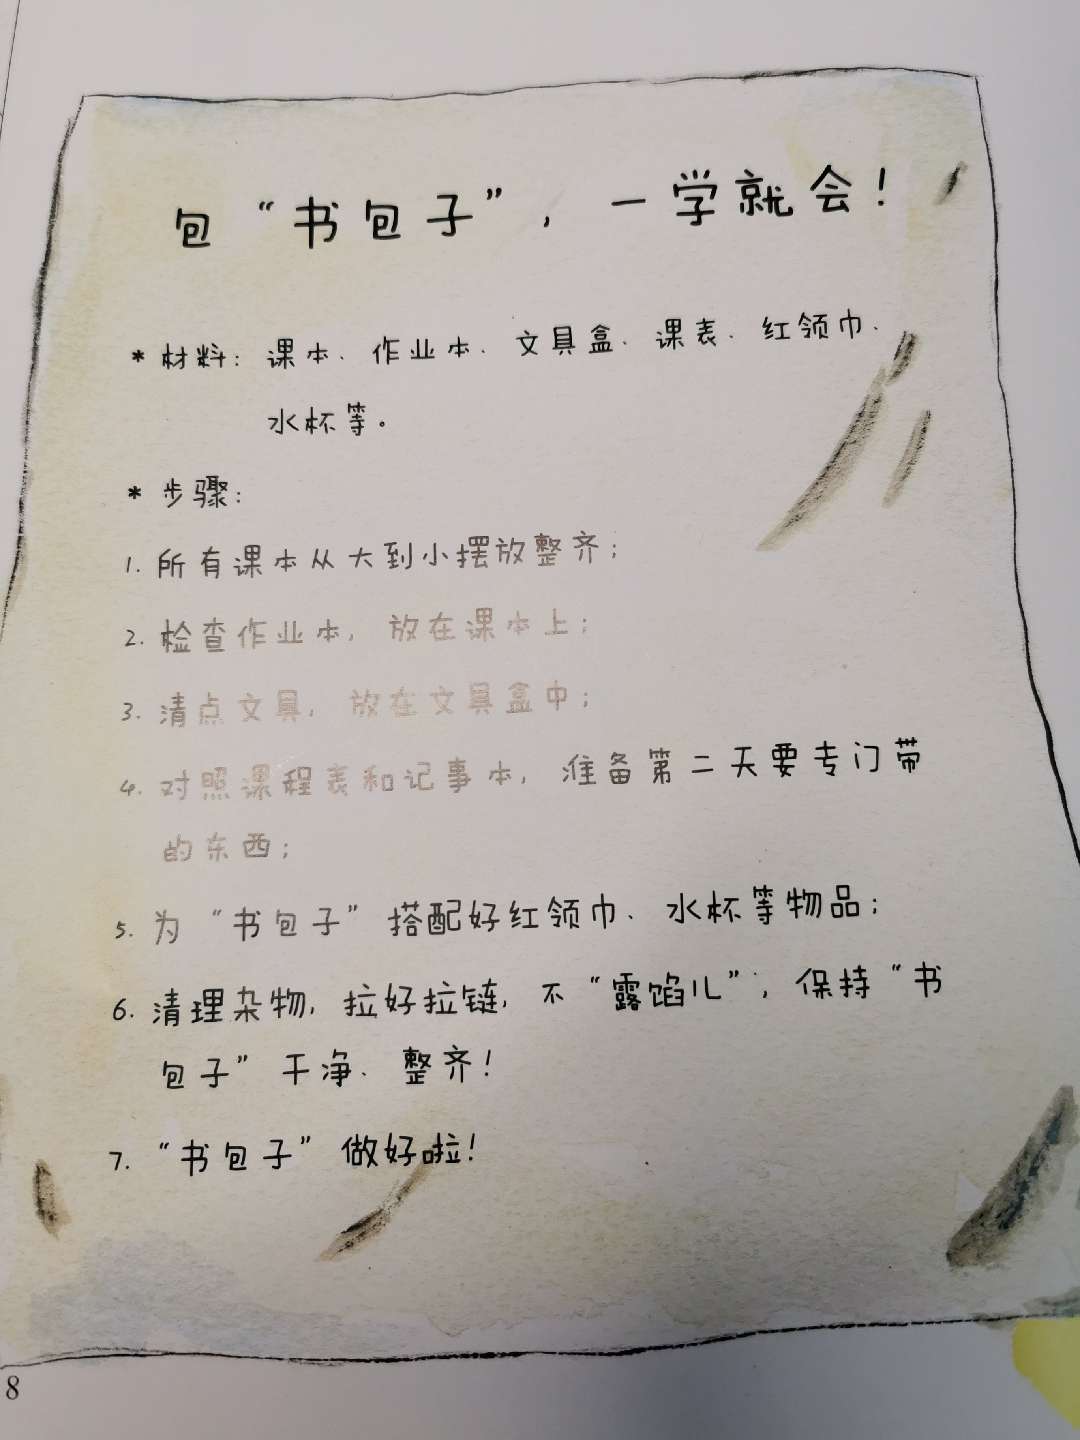 包“书包子”，一学就会！
* 材料：课本、作业本、文具盒、课表、红领巾、
水杯等。
* 步骤：
1. 所有课本从大到小摆放整齐；
2. 检查作业本，放在课本上；
3. 清点文具，放在文具盒中；
4. 对照课程表和记事本，准备第二天要专门带
的东西；
5. 为“书包子”搭配好红领巾、水杯等物品；
6. 清理杂物，拉好拉链，不“露馅儿”，保持“书
包子”干净、整齐！
7. “书包子”做好啦！
8